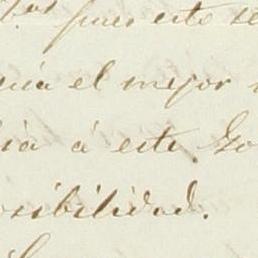 pues esto se
ria el mejor
ria á este Go
osibilidad.